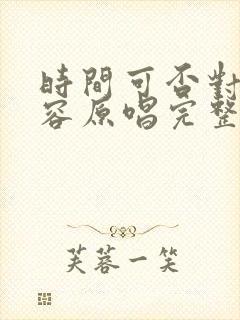 時間可否對
容原唱完整
芙蓉一笑